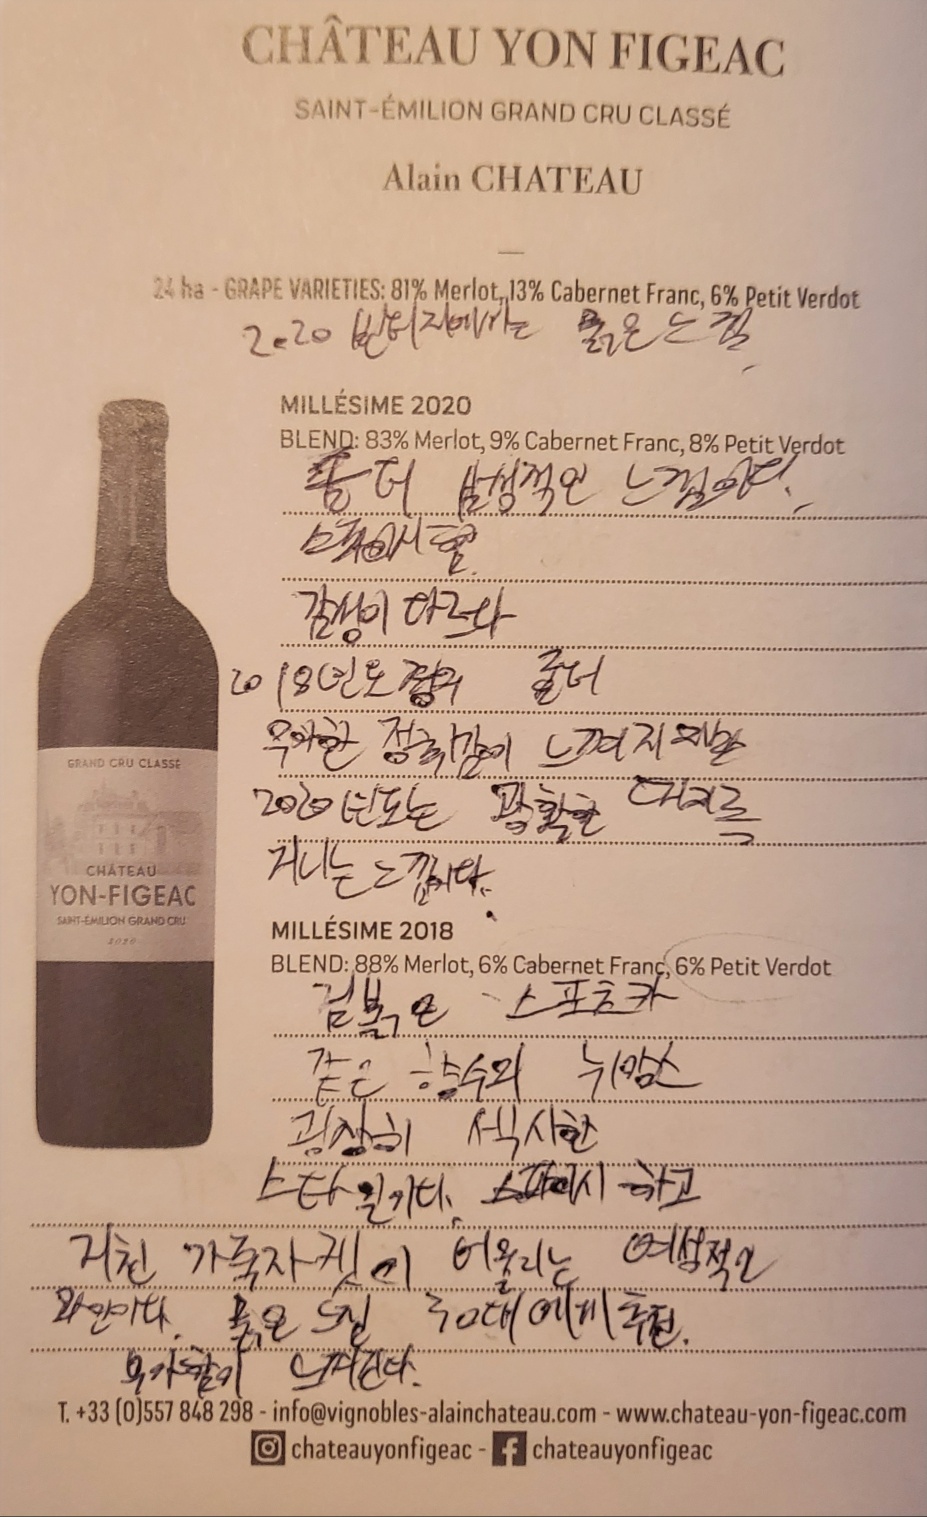 CHÂTEAU YON FIGEAC
SAINT-ÉMILION GRAND CRU CLASSÉ
Alain CHATEAU
24 ha - GRAPE VARIETIES: 81% Merlot, 13% Cabernet Franc, 6% Petit Verdot
2020 빈티지에서는 젊은 느낌
MILLÉSIME 2020
BLEND: 83% Merlot, 9% Cabernet Franc, 8% Petit Verdot
좀더 남성적인 느낌이다.
감성이 다르다
2018년도 좀더
우아한 느껴지지만
2020년도는 광활한 대지를
거니는 느낌이다.
GRAND CRU CLASSÉ
CHÂTEAU
YON-FIGEAC
SAINT-ÉMILION GRAND CRU
2020
MILLÉSIME 2018
BLEND: 88% Merlot, 6% Cabernet Franc, 6% Petit Verdot
검붉은 스포츠카
같은 향수와 뉘앙스
굉장히 섹시한
스타일이다. 스파이시 하고
거친 가죽자켓이 어울리는 여성적인
와인이다. 젊은 느낌 30대에게 추천.
우아함이 느껴진다.
T. +33 (0)557 848 298 - info@vignobles-alainchateau.com - www.chateau-yon-figeac.com
chateauyonfigeac - chateauyonfigeac